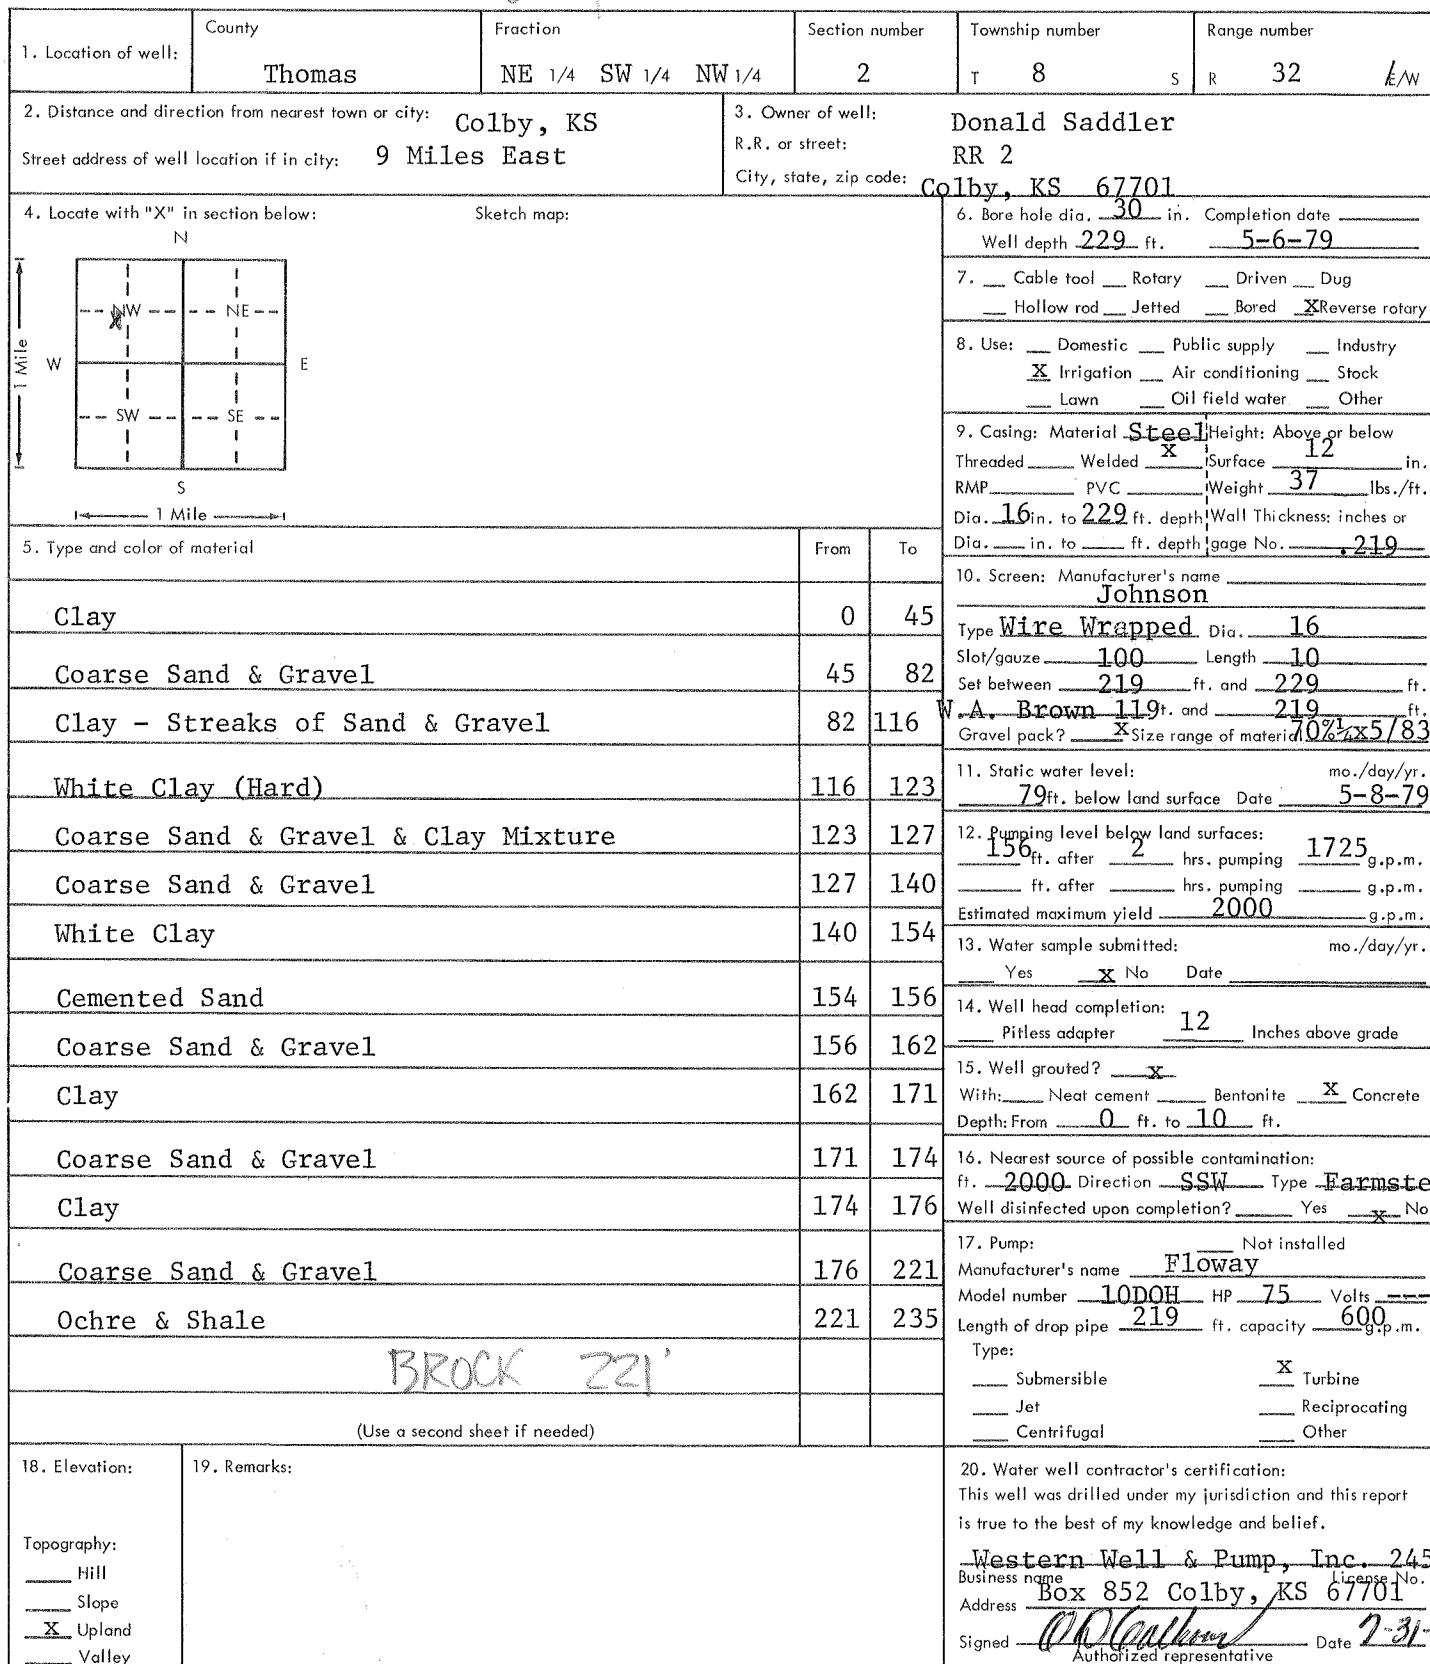 1. Location of well: County Thomas Fraction NE 1/4 SW 1/4 NW 1/4 Section number 2 Township number T 8 S Range number R 32 E/W
2. Distance and direction from nearest town or city: Colby, KS
Street address of well location if in city: 9 Miles East
3. Owner of well: Donald Saddler
R.R. or street: RR 2
City, state, zip code: Colby, KS 67701
4. Locate with "X" in section below: Sketch map:
N
NW NE
X
W E
1 Mile
SW SE
S
1 Mile
5. Type and color of material From To
Clay 0 45
Coarse Sand & Gravel 45 82
Clay - Streaks of Sand & Gravel 82 116
White Clay (Hard) 116 123
Coarse Sand & Gravel & Clay Mixture 123 127
Coarse Sand & Gravel 127 140
White Clay 140 154
Cemented Sand 154 156
Coarse Sand & Gravel 156 162
Clay 162 171
Coarse Sand & Gravel 171 174
Clay 174 176
Coarse Sand & Gravel 176 221
Ochre & Shale 221 235
BROCK 221'
(Use a second sheet if needed)
6. Bore hole dia. 30 in. Completion date
Well depth 229 ft. 5-6-79
7. Cable tool Rotary Driven Dug
Hollow rod Jetted Bored X Reverse rotary
8. Use: Domestic Public supply Industry
X Irrigation Air conditioning Stock
Lawn Oil field water Other
9. Casing: Material Steel Height: Above or below
Threaded Welded x Surface 12 in.
RMP PVC Weight 37 lbs./ft.
Dia. 16 in. to 229 ft. depth Wall Thickness: inches or
Dia. in. to ft. depth gage No. .219
10. Screen: Manufacturer's name
Johnson
Type Wire Wrapped Dia. 16
Slot/gauze 100 Length 10
Set between 219 ft. and 229 ft.
W.A. Brown 119 ft. and 219 ft.
Gravel pack? x Size range of material 70%¼x5/83
11. Static water level: mo./day/yr.
79 ft. below land surface Date 5-8-79
12. Pumping level below land surfaces:
156 ft. after 2 hrs. pumping 1725 g.p.m.
ft. after hrs. pumping g.p.m.
Estimated maximum yield 2000 g.p.m.
13. Water sample submitted: mo./day/yr.
Yes x No Date
14. Well head completion:
Pitless adapter 12 Inches above grade
15. Well grouted? x
With: Neat cement Bentonite X Concrete
Depth: From 0 ft. to 10 ft.
16. Nearest source of possible contamination:
ft. 2000 Direction SSW Type Farmste
Well disinfected upon completion? Yes x No
17. Pump: Not installed
Manufacturer's name Floway
Model number 10DOH HP 75 Volts ---
Length of drop pipe 219 ft. capacity 600 g.p.m.
Type:
Submersible X Turbine
Jet Reciprocating
Centrifugal Other
18. Elevation:
Topography:
Hill
Slope
X Upland
Valley
19. Remarks:
20. Water well contractor's certification:
This well was drilled under my jurisdiction and this report
is true to the best of my knowledge and belief.
Western Well & Pump, Inc. 245
Business name License No.
Address Box 852 Colby, KS 67701
Signed Date 7-31-
Authorized representative